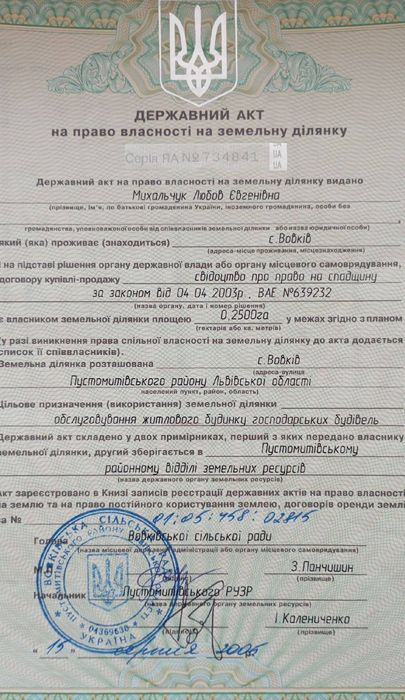 ДЕРЖАВНИЙ АКТ
на право власності на земельну ділянку
Серія ЯА №734841
UA
UA
Державний акт на право власності на земельну ділянку видано
Михальчук Любов Євгенівна
(прізвище, ім'я, по батькові громадянина України, іноземного громадянина, особи без
громадянства, уповноваженої особи від співвласників земельної ділянки або назва юридичної особи)
який (яка) проживає (знаходиться) с.Вовків
(адреса-місце проживання, місцезнаходження)
і на підставі рішення органу державної влади або органу місцевого самоврядування,
договору купівлі-продажу свідоцтво про право на спадщину
за законом від 04 04 2003р , ВАЕ №639232
(назва органу, дата і номер рішення)
є власником земельної ділянки площею 0,2500га у межах згідно з планом
(гектарів або кв. метрів)
(у разі виникнення права спільної власності на земельну ділянку до акта додається
список її співвласників).
Земельна ділянка розташована с.Вовків
(адреса-вулиця
Пустомитівського району Львівської області
населений пункт, район, область)
Цільове призначення (використання) земельної ділянки
обслуговування житлового будинку господарських будівель
Державний акт складено у двох примірниках, перший з яких передано власнику
земельної ділянки, другий зберігається в Пустомитівському
районному відділі земельних ресурсів
Акт зареєстровано в Книзі записів реєстрації державних актів на право власності
на землю та на право постійного користування землею, договорів оренди землі
за № 01:05:458:02815
Голова Вовківської сільської ради
(назва місцевої державної адміністрації або органу місцевого самоврядування)
З.Панчишин
(прізвище)
Начальник Пустомитівського РУЗР
(назва державного органу земельних ресурсів)
І.Калениченко
(підпис) (прізвище)
"15" серпня 2005
04369630
УКРАЇНА